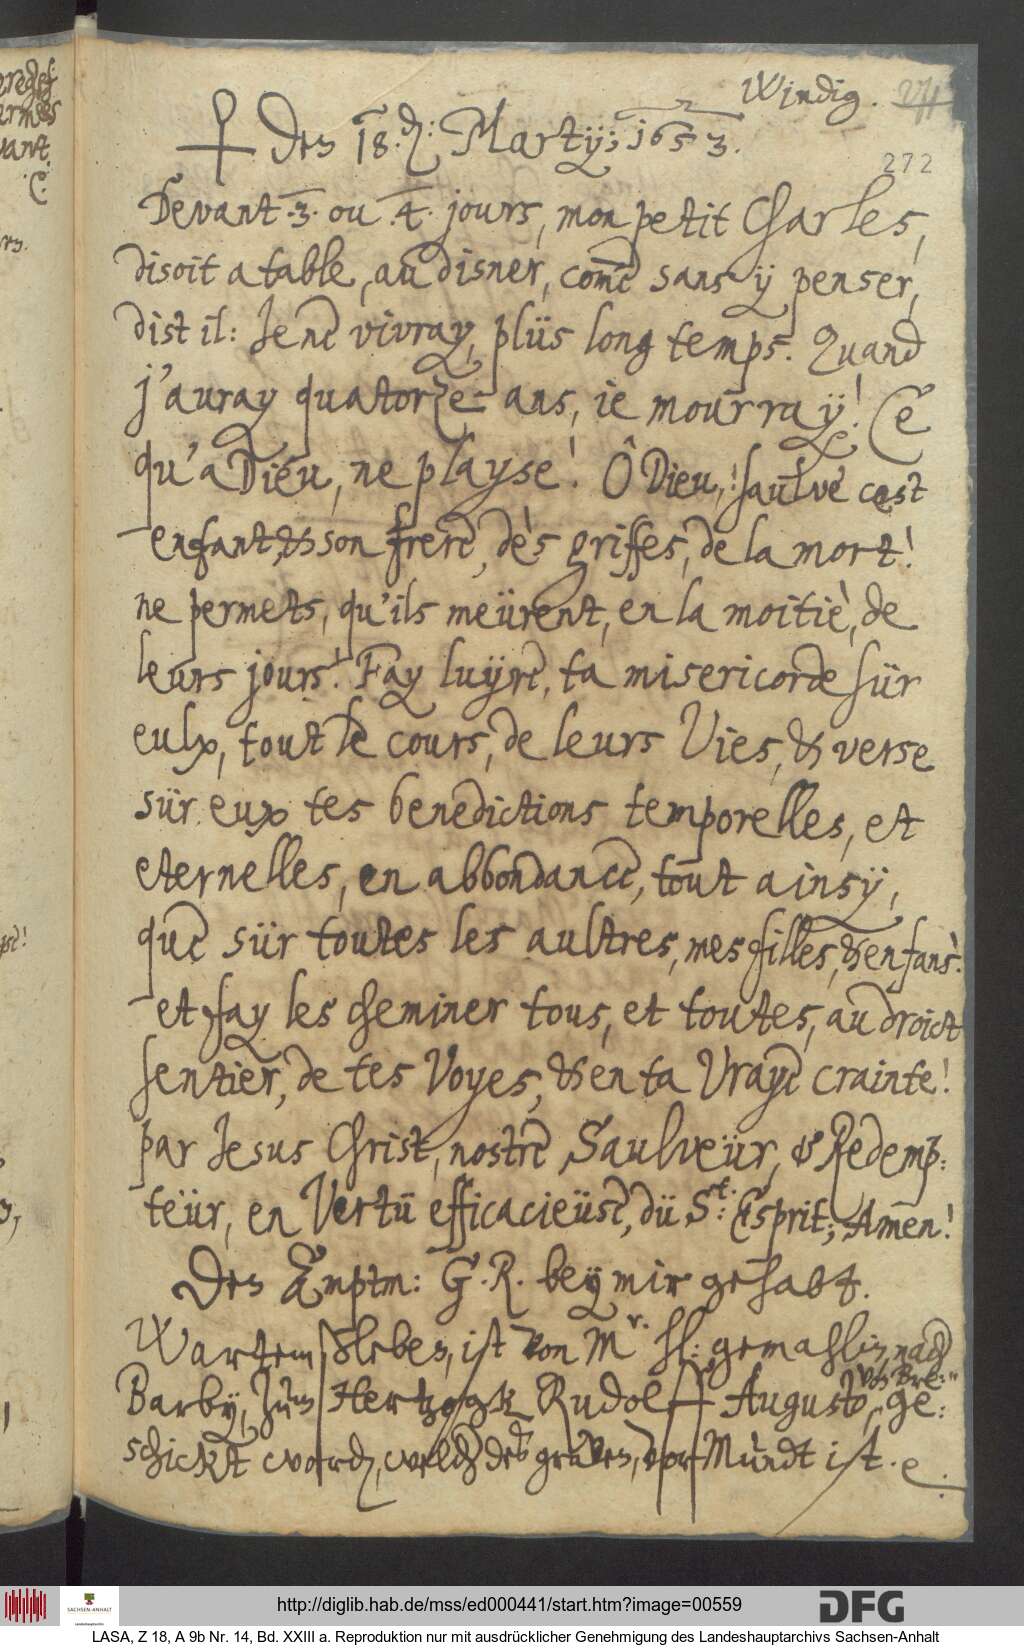 Windig. 271
Den 18.den: Martij; 1653.
272
Devant .3. ou .4. jours, mon petit Charles,
disoit a table, au disner, com̃e sans ÿ penser,
dist il: Je ne vivray, plüs long temps. Quand
j'auray quatorze ans, ie mourraÿ! Ce
qu'a Dieu, ne playse! Ô Dieu,! saulve cest
enfant, & son frere, dès griffes, de la mort!
ne permets, qu'ils meürent, en la moitiè, de
leurs jours! Fay luÿre, ta misericorde sür
eulx, tout le cours, de leurs Vies, & verse
sür eux tes benedictions temporelles, et
eternelles, en abbondance, tout ainsÿ,
que sür toutes les aultres, mes filles, & enfans̀.
et fay les cheminer tous, et toutes, au droict
sentier, de tes Voyes, & en ta Vraye crainte!
par Jesus Christ, nostre Saulveür, & Redemp:
teür, en Vertü efficacieüse, dü St: Esprit; Amen!
Den Amptm: G. R. beÿ mir gehabt.
Wartemßleben, ist von Mr. hl: gemahlin, nach
Barbÿ, zum Hertzogk Rudolff Augusto, von Br: ge:
schickt word, welch des graven, vor Mundt ist. e.
http://diglib.hab.de/mss/ed000441/start.htm?image=00559
DFG
SACHSEN-ANHALT
LASA, Z 18, A 9b Nr. 14, Bd. XXIII a. Reproduktion nur mit ausdrücklicher Genehmigung des Landeshauptarchivs Sachsen-Anhalt